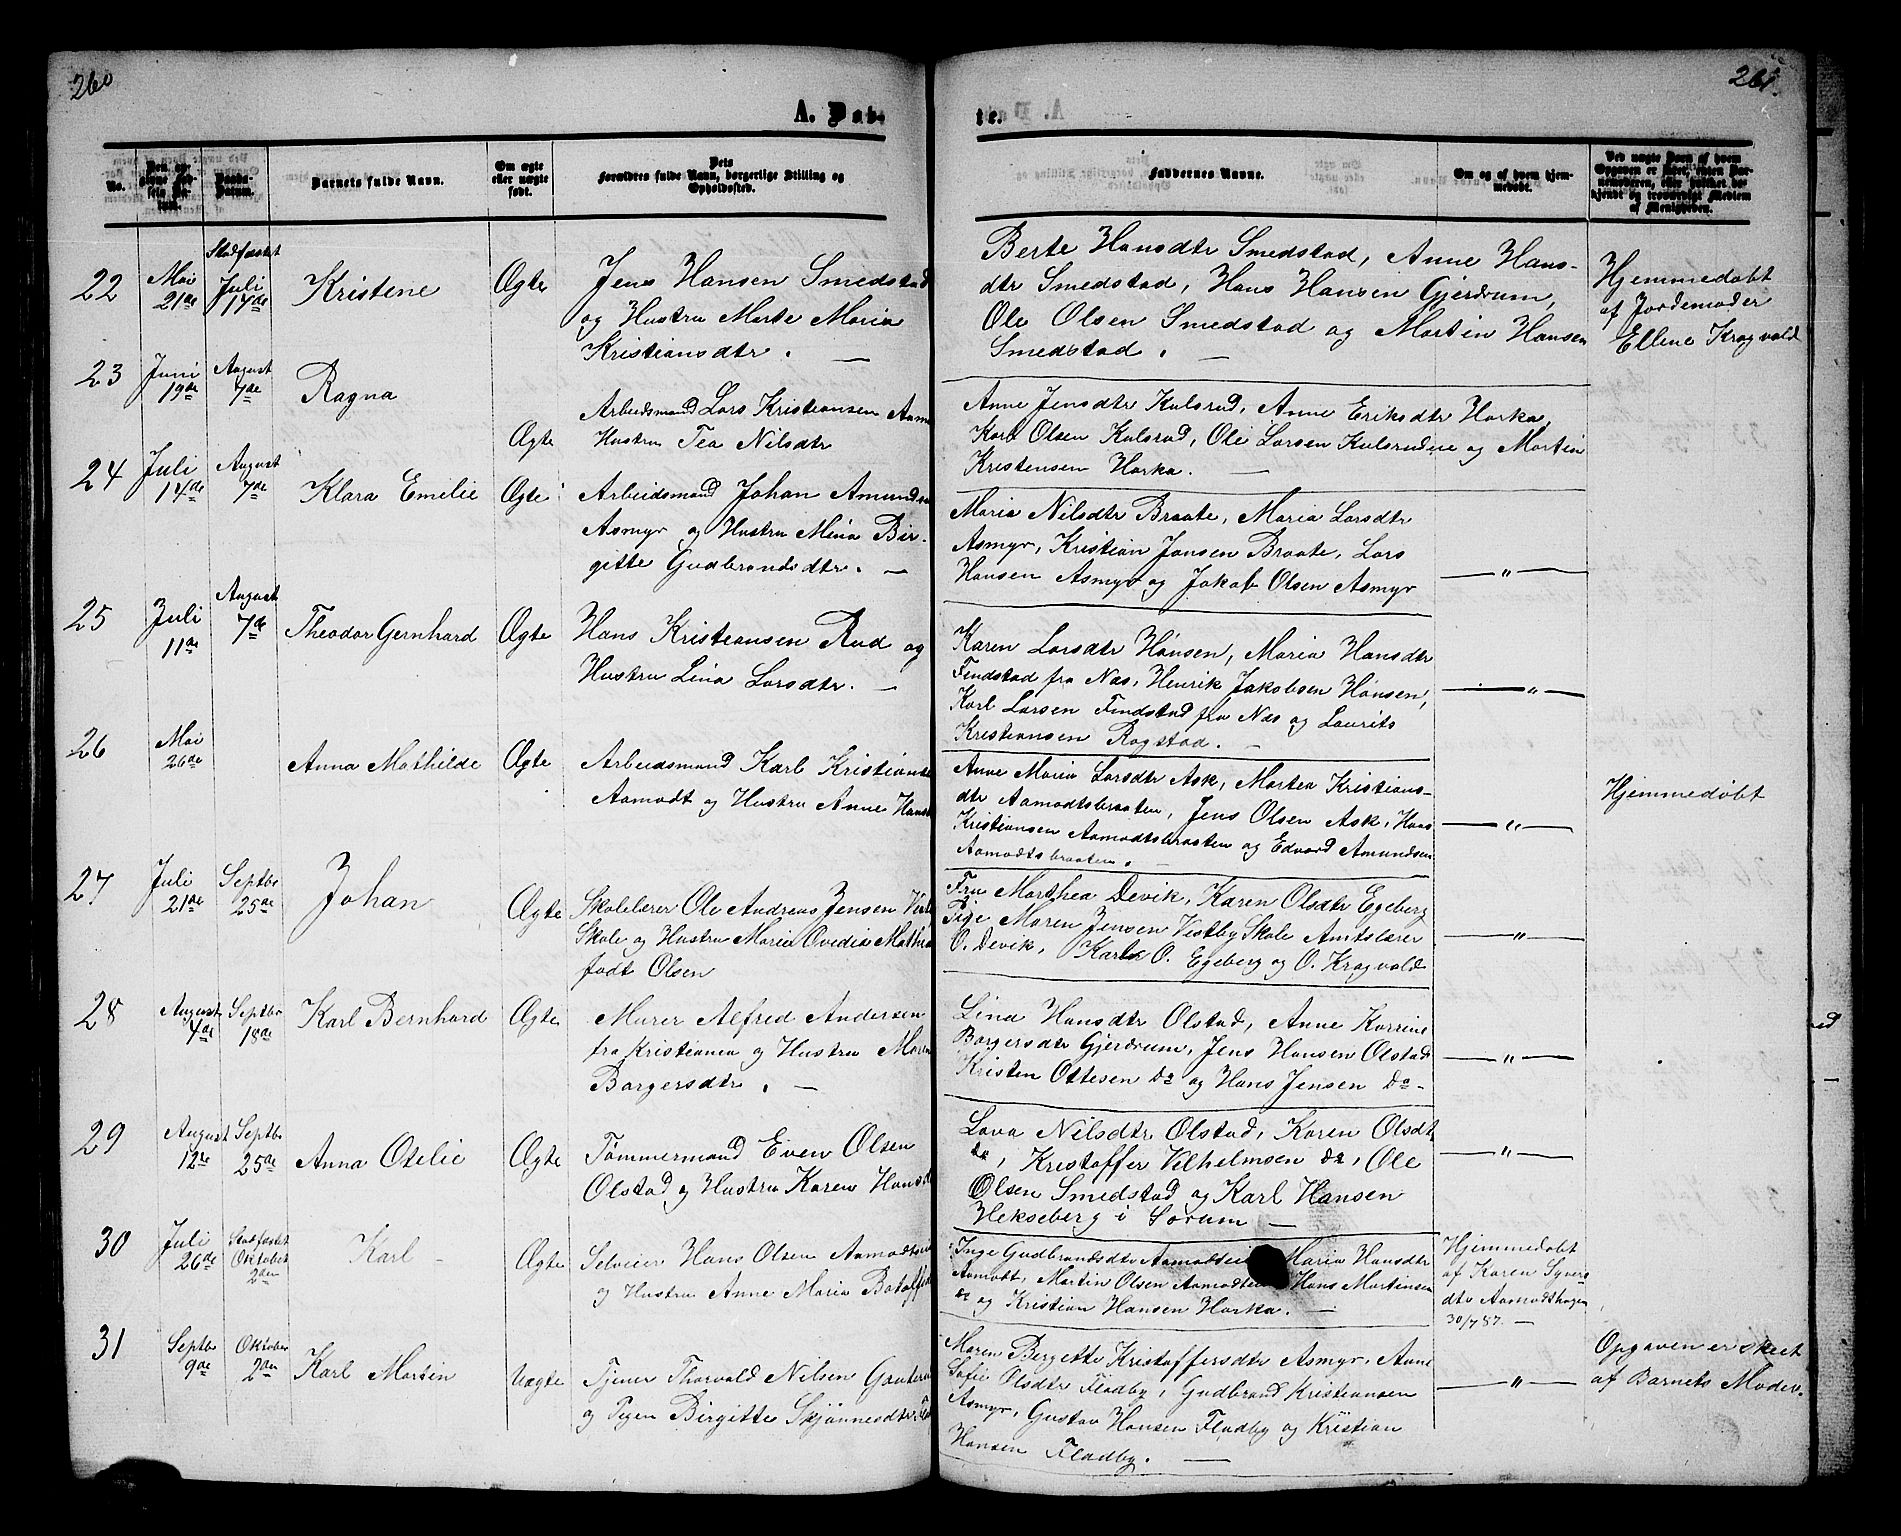 260
261.
A. Døb-
te.
No.
Barnets fulde Navn.
Om ægte eller uægte født.
Forældres fulde Navn, borgerlige Stilling og Opholdssted.
Faddernes Navne.
Om og af hvem hjemmedøbt.
22
Mai 21de
Stadfæstet Juli 17de
Kristene
Ægte
Jens Hansen Smedstad
og Hustru Marte Maria
Kristiansdtr. —
Berte Hansdtr Smedstad, Anne Hans-
dtr Smedstad, Hans Hansen Gjerdrum,
Ole Olsen Smedstad og Martin Hansen
Smedstad. —
Hjemmedøbt
af Jordemoder
Ellene Kragvald
23
Juni 19de
August 7de
Ragna
Ægte
Arbeidsmand Lars Kristiansen
Hustru Tea Nilsdtr
Anne Jensdtr Kulsrud, Anne Eriksdtr Harka,
Karl Olsen Kulsrud, Ole Larsen Kulsrudeie og Martin
Kristensen Harka. —
24
Juli 14de
August 7de
Klara Emelie
Ægte
Arbeidsmand Johan
Asmyr og Hustru Mina Bir-
gitte Gudbrandsdtr. —
Maria Nilsdtr Braate, Maria Larsdtr
Asmyr, Kristian Jansen Braate, Lars
Hansen Asmyr og Jakob Olsen Asmyr
— " —
25
Juli 11de
August 7de
Theodor Gernhard
Ægte
Hans Kristiansen Rud og
Hustru Lina Larsdtr. —
Karen Larsdtr Hansen, Maria Hansdtr
Findstad fra Næs, Henrik Jakobsen Hansen,
Karl Larsen Findstad fra Næs og Laurits
Kristiansen Rogstad. —
— " —
26
Mai 26de
Anna Mathilde
Ægte
Arbeidsmand Karl
Aamodt og Hustru Anne
Anne Maria Larsdtr Ask, Martea Kristians-
dtr Aamodtsbraaten, Jens Olsen Ask, Hans
Kristiansen Aamodtsbraaten og Edvard Amundsen
Aamodtsbraaten. —
— " —
Hjemmedøbt
27
Juli 21de
Septbr 25de
Johan
Ægte
Skolelærer Ole Andreas Jensen
Skole og Hustru Maria Ovedia
født Olsen
Fru Marthea Devik, Karen Olsdtr Egeberg
Pige Maren Jensen Vestby Skole Amtslærer
O. Devik, Karl O. Egeberg og O. Kragvald
— " —
28
August 4de
Septbr 18de
Karl Bernhard
Ægte
Murer Alfred Andersen
fra Kristiania og Hustru Maren
Borgersdtr. —
Lina Hansdtr Olstad, Anne Karrine
Borgersdtr Gjerdrum, Jens Hansen Olstad
Kristen Ottesen do og Hans Jensen do-
— " —
29
August 12te
Septbr 25de
Anna Otelie
Ægte
Tømmermand Even Olsen
Olstad og Hustru Karen
Lova Nilsdtr Olstad, Karen Olsdtr
do, Kristoffer Vilhelmsen do, Ole
Olsen Smedstad og Karl Hansen
Hekseberg i Sørum —
— " —
30
Juli 26de
Stadfæstet Oktober 2den
Karl
Ægte
Selveier Hans Olsen
og Hustru Anne Maria
Inge Gudbrandsdtr Maria Hansdtr
Aamodt, Martin Olsen Hans Martinsen
do og Kristian Hansen Harka. —
Hjemmedøbt
af Karen Syvers
dtr Aamodthagen
30/7 87. —
31
Septbr 9de
Oktober 2den
Karl Martin
Uægte
Tjener Thorvald Nilsen
og Pigen Birgitte Skjønnesdtr
Maren Bergette Kristoffersdtr Asmyr, Anne
Sofie Olsdtr Fladby, Gudbrand Kristiansen
Asmyr, Gustav Hansen Fladby og Kristian
Hansen Fladby. —
— " —
Opgaven er skeet
af Barnets Moder.